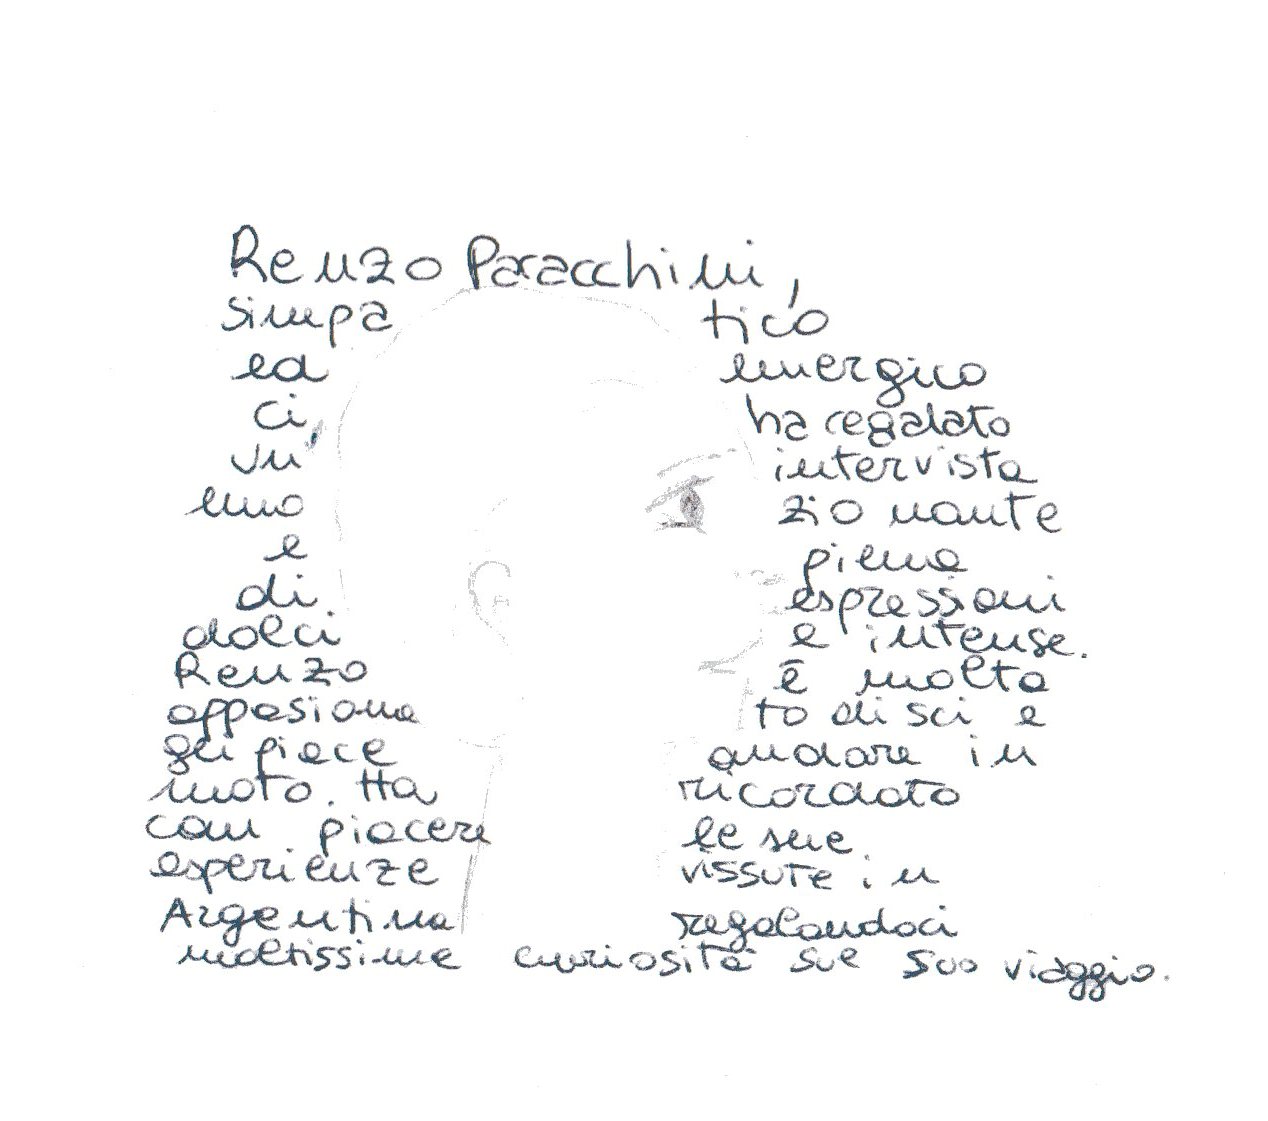 Renzo Paracchini,
simpa tico
ed energico
ci ha regalato
un' intervista
emo zio nante
e piena
di espressioni
dolci e intense.
Renzo è molto
appasiona to di sci e
gli piace andare in
moto. Ha ricordato
con piacere le sue
esperienze vissute in
Argentina regalandoci
moltissime curiosità sul suo viaggio.